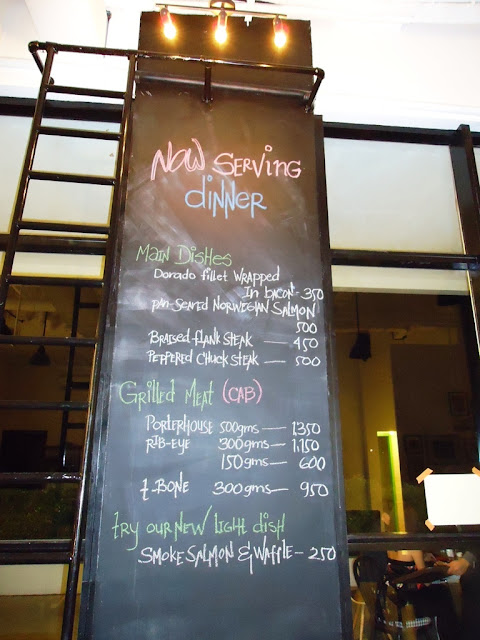 Now Serving
dinner
Main Dishes
Dorado fillet wrapped
In bacon - 350
pan-seared Norwegian Salmon
500
Braised flank steak — 450
Peppered chuck steak — 500
Grilled Meat (CAB)
Porterhouse 500gms — 1350
Rib-eye 300gms — 1.150
150gms — 600
T-Bone 300gms — 950
try our new light dish
Smoke Salmon & Waffle - 250